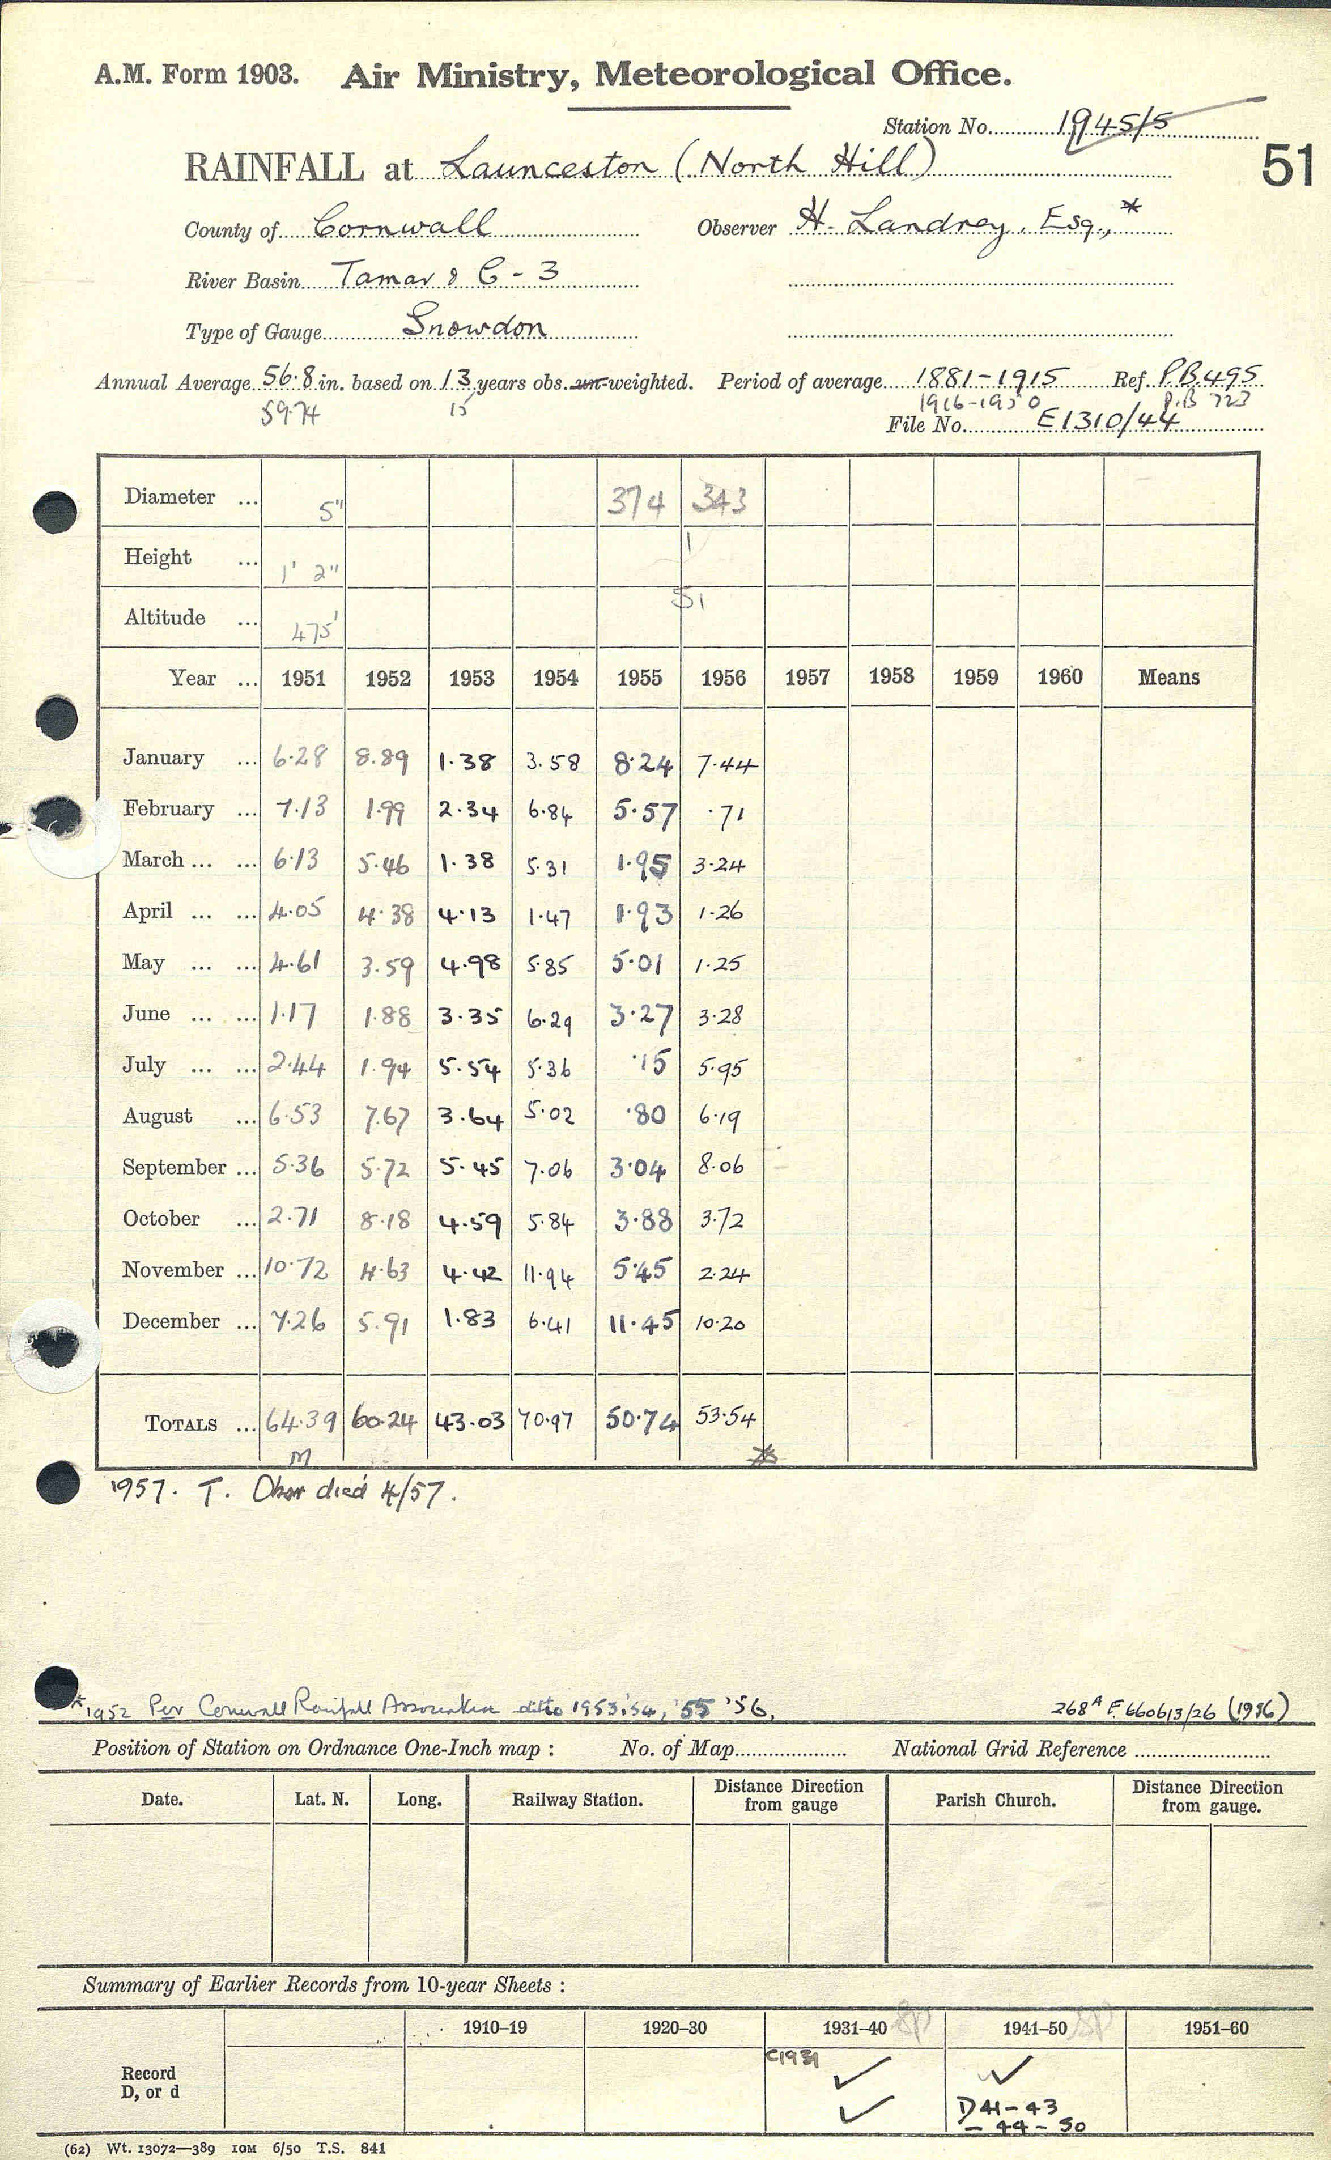 A.M. Form 1903. Air Ministry, Meteorological Office.
Station No. 1945/5
51
RAINFALL at Launceston (North Hill)
County of Cornwall Observer H. Landrey, Esq., *
River Basin Tamar & C - 3
Type of Gauge Snowdon
Annual Average 56.8 in. based on 13 years obs. un-weighted. Period of average 1881-1915 Ref. P.B.495
59.74 15 1916-1950 P.B 723
File No. E1310/44
Diameter ... 5" 374 343
Height ... 1' 2" 1
Altitude ... 475' 51
Year ... 1951 1952 1953 1954 1955 1956 1957 1958 1959 1960 Means
January ... 6.28 8.89 1.38 3.58 8.24 7.44
February ... 7.13 1.99 2.34 6.84 5.57 .71
March ... ... 6.13 5.46 1.38 5.31 1.95 3.24
April ... ... 4.05 4.38 4.13 1.47 1.93 1.26
May ... ... 4.61 3.59 4.98 5.85 5.01 1.25
June ... ... 1.17 1.88 3.35 6.29 3.27 3.28
July ... ... 2.44 1.94 5.54 5.36 .15 5.95
August ... 6.53 7.67 3.64 5.02 .80 6.19
September ... 5.36 5.72 5.45 7.06 3.04 8.06
October ... 2.71 8.18 4.59 5.84 3.88 3.72
November ... 10.72 4.63 4.42 11.94 5.45 2.24
December ... 7.26 5.91 1.83 6.41 11.45 10.20
TOTALS ... 64.39 60.24 43.03 70.97 50.74 53.54
m *
1957. T. Obsr died 4/57.
*1952 Per Cornwall Rainfall Association ditto 1953, '54, '55 '56. 268A F. 660613/26 (1956)
Position of Station on Ordnance One-Inch map : No. of Map National Grid Reference
Date. Lat. N. Long. Railway Station. Distance Direction from gauge Parish Church. Distance Direction from gauge.
Summary of Earlier Records from 10-year Sheets :
1910–19 1920–30 1931–40 1941–50 1951–60
C1931 ✓ ✓
Record
D, or d ✓ D 41-43
- 44 - 50
(62) Wt. 13072—389 10M 6/50 T.S. 841